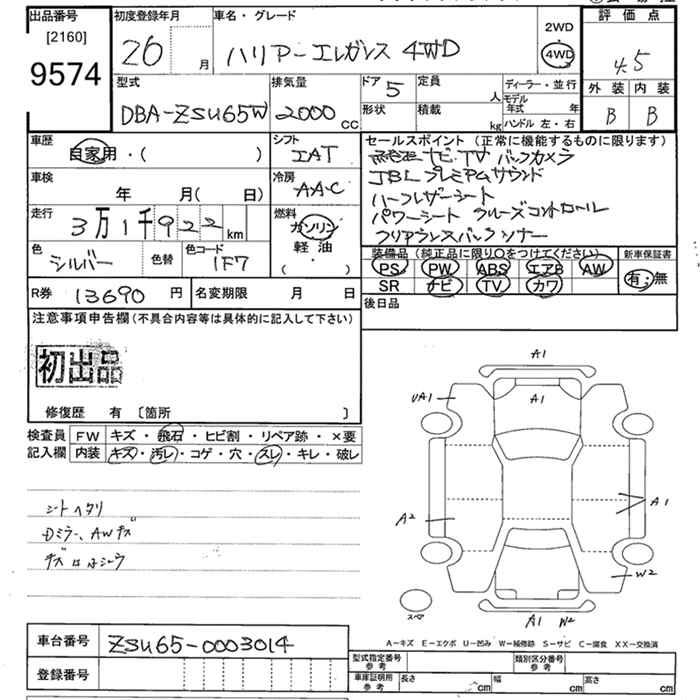 出品番号 初度登録年月 車名・グレード 評価点
[2160]
9574
26 月 ハリアーエレガンス 4WD 2WD 4WD 4.5
型式 排気量 ドア 5 定員 人 ディーラー・並行 外装 内装
DBA-ZSU65W 2000 cc 形状 積載 kg モデル年式 年 B B
ハンドル 左・右
車歴 自家用・( ) シフト IAT セールスポイント(正常に機能するものに限ります)
ナビ TV バックカメラ
車検 年 月( 日) 冷房 AAC JBLプレミアムサウンド
ハーフレザーシート
走行 3万1千922km 燃料 ガソリン パワーシート クルーズコントロール
軽油 クリアランスバックソナー
( )
色 シルバー 色替 色コード 1F7 装備品(純正品に限り○をつけてください) 新車保証書
PS PW ABS エアB AW 有・無
SR ナビ TV カワ
R券 13690 円 名変期限 月 日 後日品
注意事項申告欄(不具合内容等は具体的に記入して下さい)
初出品
修復歴 有〔箇所 〕
検査員記入欄 FW キズ・飛石・ヒビ割・リペア跡・×要
内装 キズ・汚レ・コゲ・穴・スレ・キレ・破レ
A1
A1
UA1
A1
A2
W2
A1 W2
スペア
シートヘタリ
Dミラー、AWキズ
A−キズ E−エクボ U−凹み W−補修跡 S−サビ C−腐食 XX−交換済
車台番号 ZSU65-0003014
登録番号
型式指定番号 参考 類別区分番号 参考
車庫証明用 参考 長さ cm 幅 cm 高さ cm